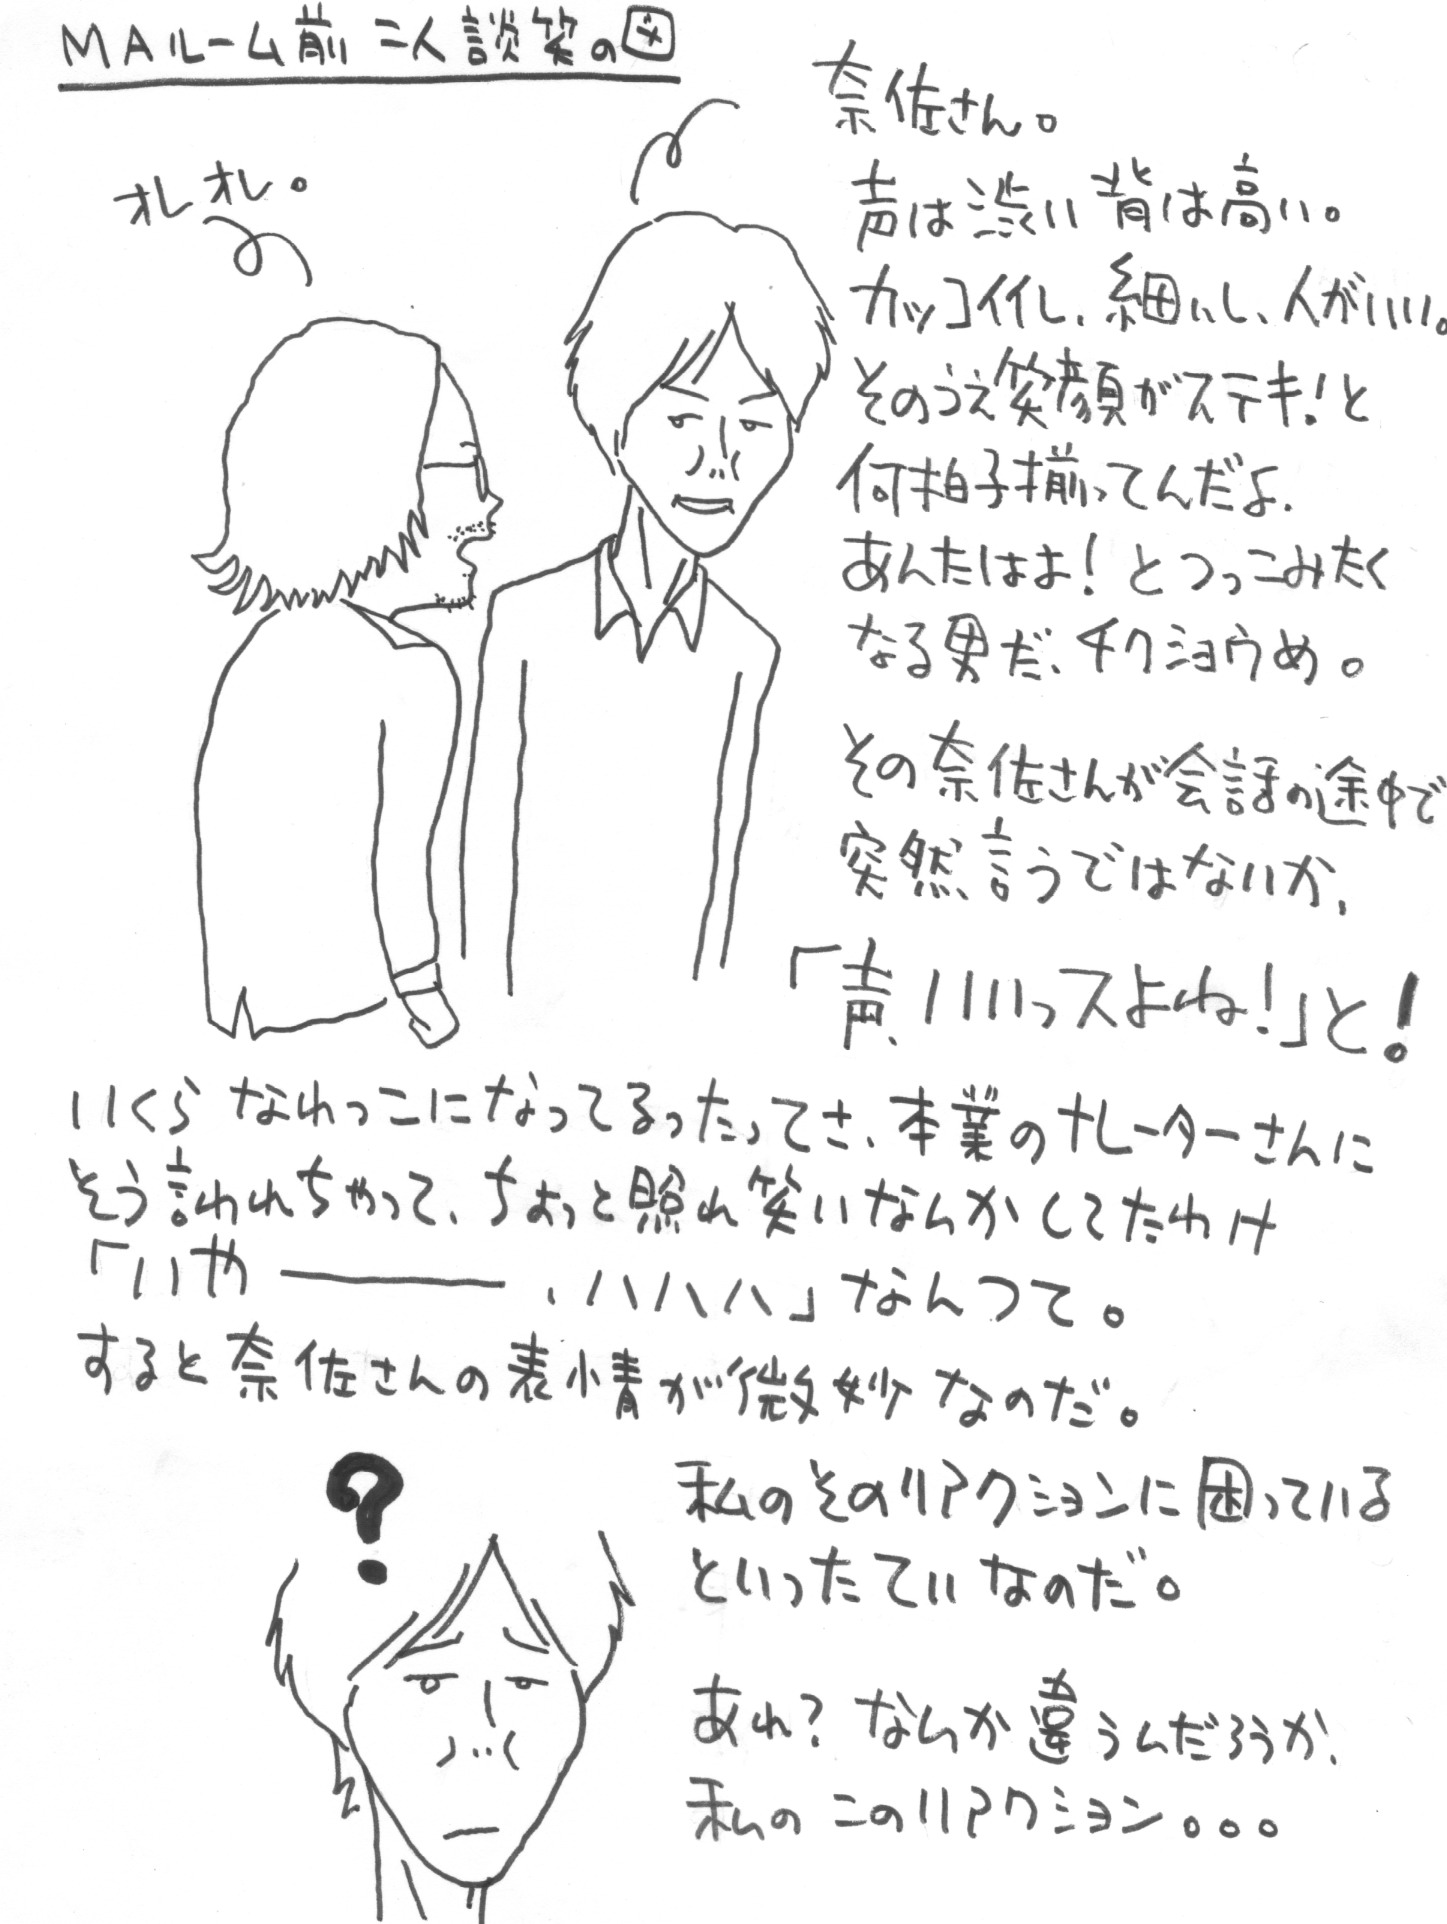 MAルーム前 二人談笑の図
オレオレ。
奈佐さん。
声は渋い背は高い。
カッコイイし、細いし、人がいい。
そのうえ笑顔がステキ!と
何拍子揃ってんだよ、
あんたはよ!とつっこみたく
なる男だ、チクショウめ。
その奈佐さんが会話の途中で
突然言うではないか、
「声、いいっスよね!」と!
いくらなれっこになってるったってさ、本業のナレーターさんに
そう言われちゃって、ちょっと照れ笑いなんかしてたわけ
「いや――――、ハハハ」なんつて。
すると奈佐さんの表情が微妙なのだ。
?
私のそのリアクションに困っている
といったていなのだ。
あれ?なんか違うんだろうか、
私のこのリアクション。。。